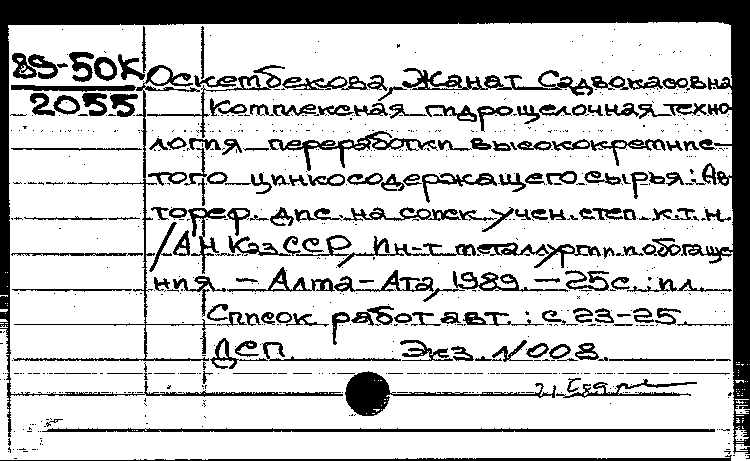 89-50К Оскетбекова, Жанат Садвокасовна
2055 Комплексная гидрощелочная техно-
логия переработки высококремнис-
того цинкосодержащего сырья: Ав-
тореф. дис. на соиск. учен. степ. к.т.н.
/АН КазССР, Ин-т металлургии и обогаще-
ния. - Алма-Ата, 1989. - 25с.: ил.
Список работ авт.: с. 23-25.
ДСП. Экз. N008.